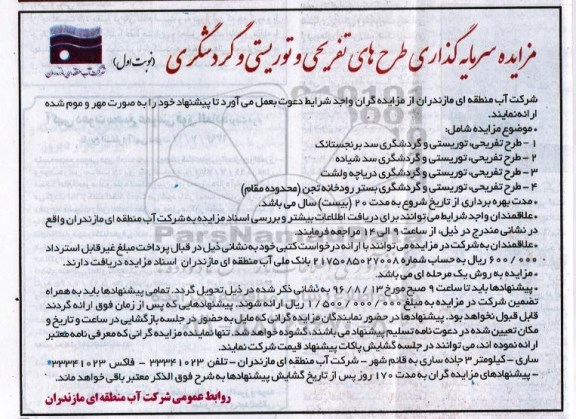 مزایده سرمایه گذاری طرح های تفریحی و توریستی و گردشگری (نوبت اول)
شرکت آب منطقه ای مازندران
شرکت آب منطقه ای مازندران از مزایده گران واجد شرایط دعوت بعمل می آورد تا پیشنهاد خود را به صورت مهر و موم شده
ارائه نمایند.
• موضوع مزایده شامل:
۱ - طرح تفریحی، توریستی و گردشگری سد برنجستانک
۲ - طرح تفریحی، توریستی و گردشگری سد شیاده
۳ - طرح تفریحی، توریستی و گردشگری دریاچه ولشت
۴ - طرح تفریحی، توریستی و گردشگری بستر رودخانه تجن (محدوده مقام)
• مدت بهره برداری از تاریخ شروع به مدت ۲۰ (بیست) سال می باشد.
• علاقمندان واجد شرایط می توانند برای دریافت اطلاعات بیشتر و بررسی اسناد مزایده به شرکت آب منطقه ای مازندران واقع
در نشانی مندرج در ذیل، از ساعت ۹ الی ۱۴ مراجعه فرمایند.
• علاقمندان به شرکت در مزایده می توانند با ارائه درخواست کتبی خود به نشانی ذیل در قبال پرداخت مبلغ غیر قابل استرداد
۶۰۰/۰۰۰ ریال به حساب شماره ۲۱۷۵۰۸۵۰۲۷۰۰۸ بانک ملی آب منطقه ای مازندران اسناد مزایده دریافت دارند.
• مزایده به روش یک مرحله ای می باشد.
• پیشنهادها باید تا ساعت ۹ صبح مورخ ۹۶/۸/۱۳ به نشانی ذکر شده در ذیل تحویل گردد. تمامی پیشنهادها باید به همراه
تضمین شرکت در مزایده به مبلغ ۱/۵۰۰/۰۰۰/۰۰۰ ریال ارائه شوند. پیشنهادهایی که پس از زمان فوق ارائه گردند
قابل قبول نخواهد بود. پیشنهادها در حضور نمایندگان مزایده گرانی که مایل به حضور در جلسه بازگشایی در ساعت و تاریخ و
مکان تعیین شده در دعوت نامه تسلیم پیشنهاد می باشند، گشوده خواهد شد. تنها نماینده مزایده گرانی که معرفی نامه معتبر
ارائه نموده اند، می توانند در جلسه گشایش پاکات پیشنهاد قیمت شرکت نمایند.
ساری - کیلومتر ۳ جاده ساری به قائم شهر - شرکت آب منطقه ای مازندران - تلفن ۳۳۳۴۱۰۲۳ - فاکس ۳۳۳۴۱۰۲۳
- پیشنهادهای مزایده گران به مدت ۱۷۰ روز پس از تاریخ گشایش پیشنهادها به شرح فوق الذکر معتبر باقی خواهد ماند.
روابط عمومی شرکت آب منطقه ای مازندران